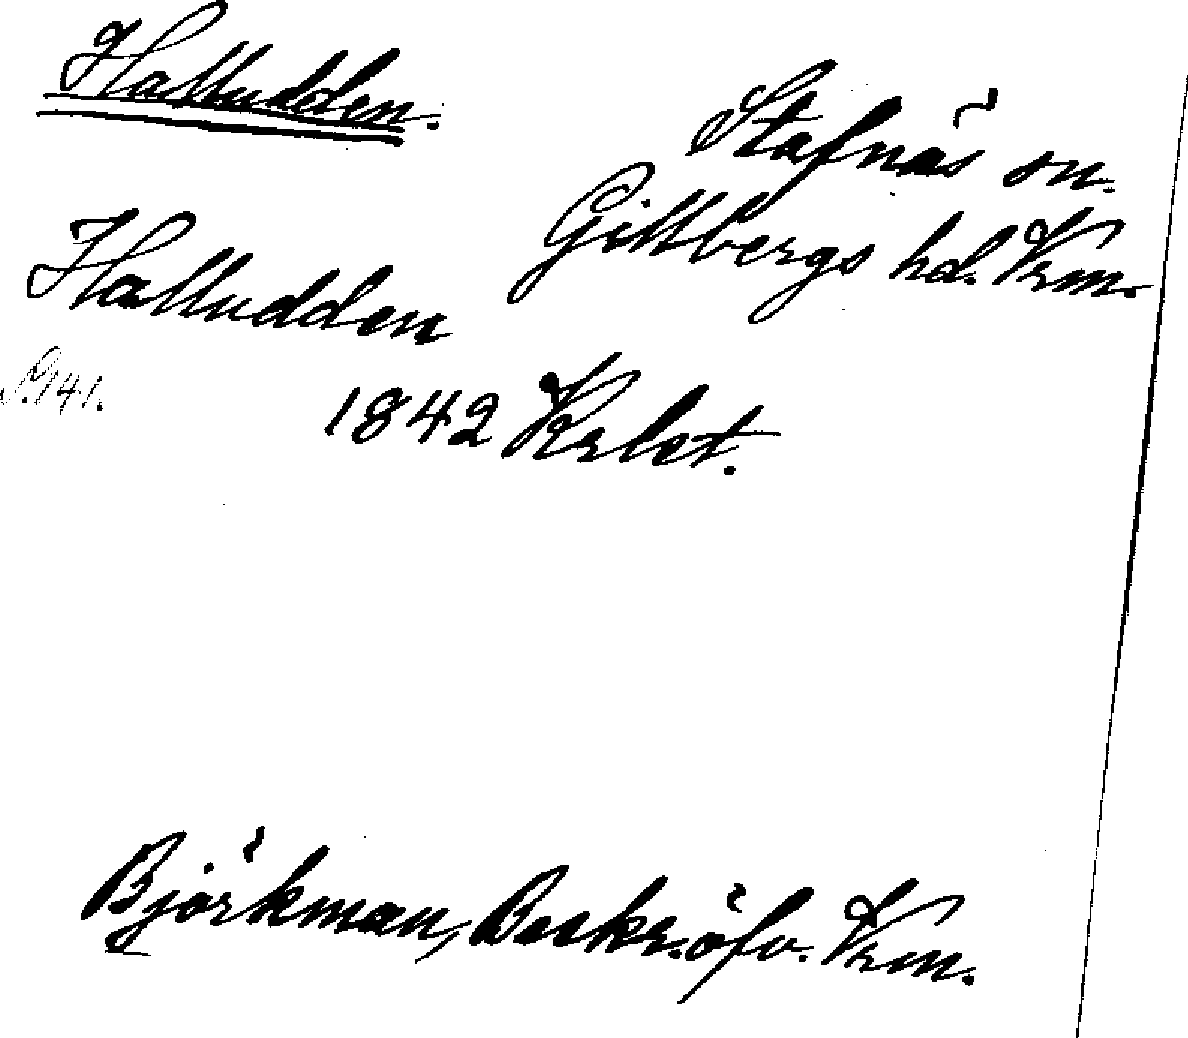 Halludden.
Stafnäs sn.
Gillbergs hd. Vrm.
Halludden
S. 141.
1842 Krlet.
Björkman, Beskr. öfv. Vrm.